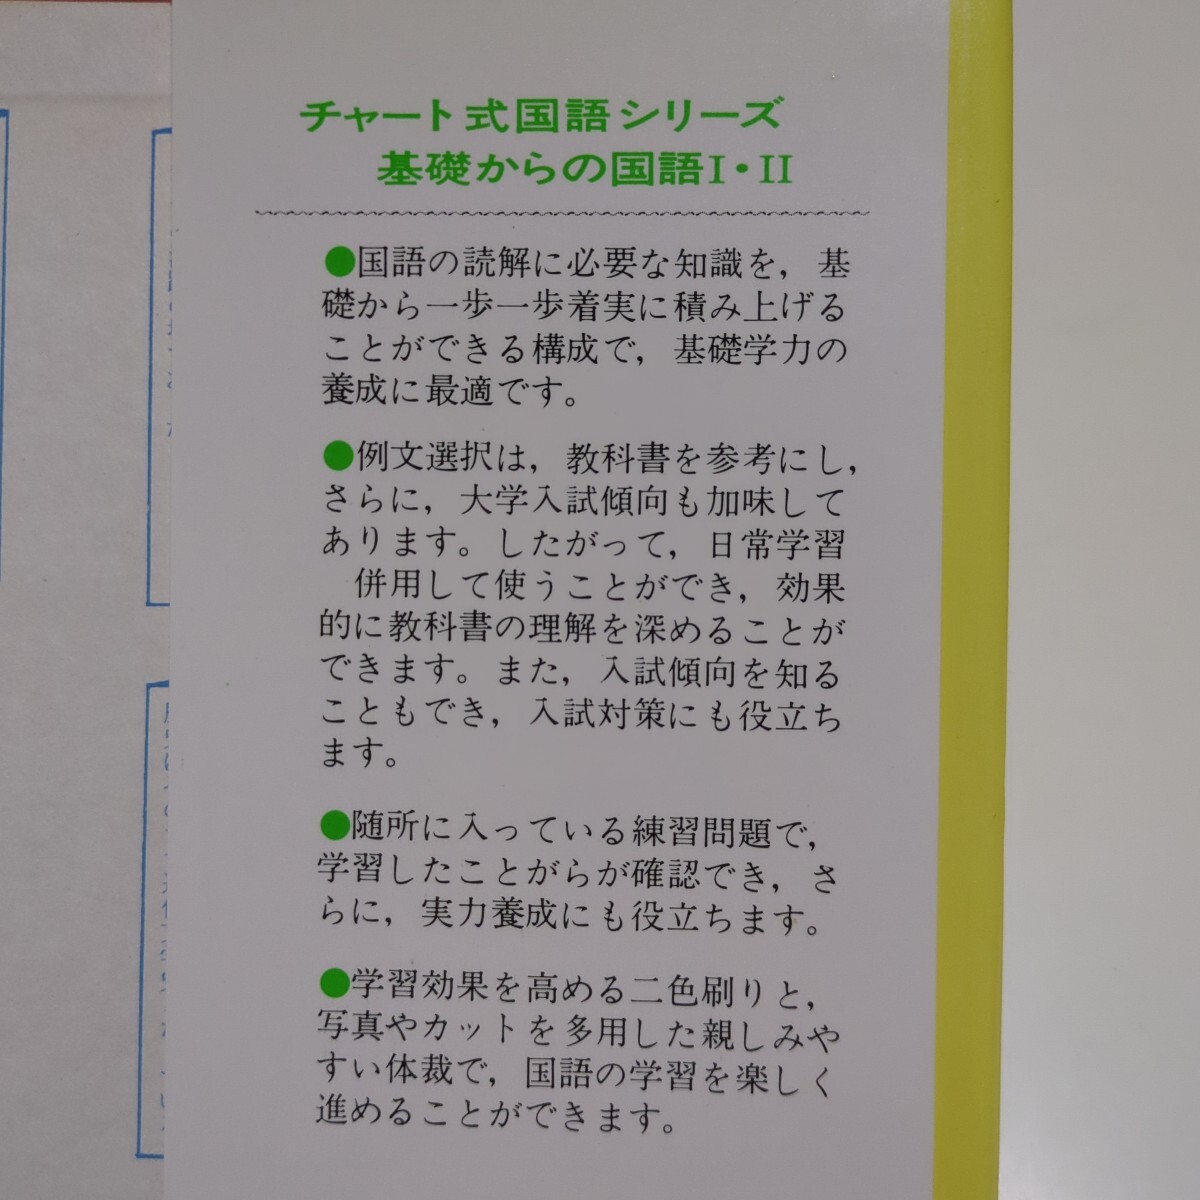 チャート式国語シリーズ
基礎からの国語I・II
●国語の読解に必要な知識を，基
礎から一歩一歩着実に積み上げる
ことができる構成で，基礎学力の
養成に最適です。
●例文選択は，教科書を参考にし，
さらに，大学入試傾向も加味して
あります。したがって，日常学習
併用して使うことができ，効果
的に教科書の理解を深めることが
できます。また，入試傾向を知る
こともでき，入試対策にも役立ち
ます。
●随所に入っている練習問題で，
学習したことがらが確認でき，さ
らに，実力養成にも役立ちます。
●学習効果を高める二色刷りと，
写真やカットを多用した親しみや
すい体裁で，国語の学習を楽しく
進めることができます。